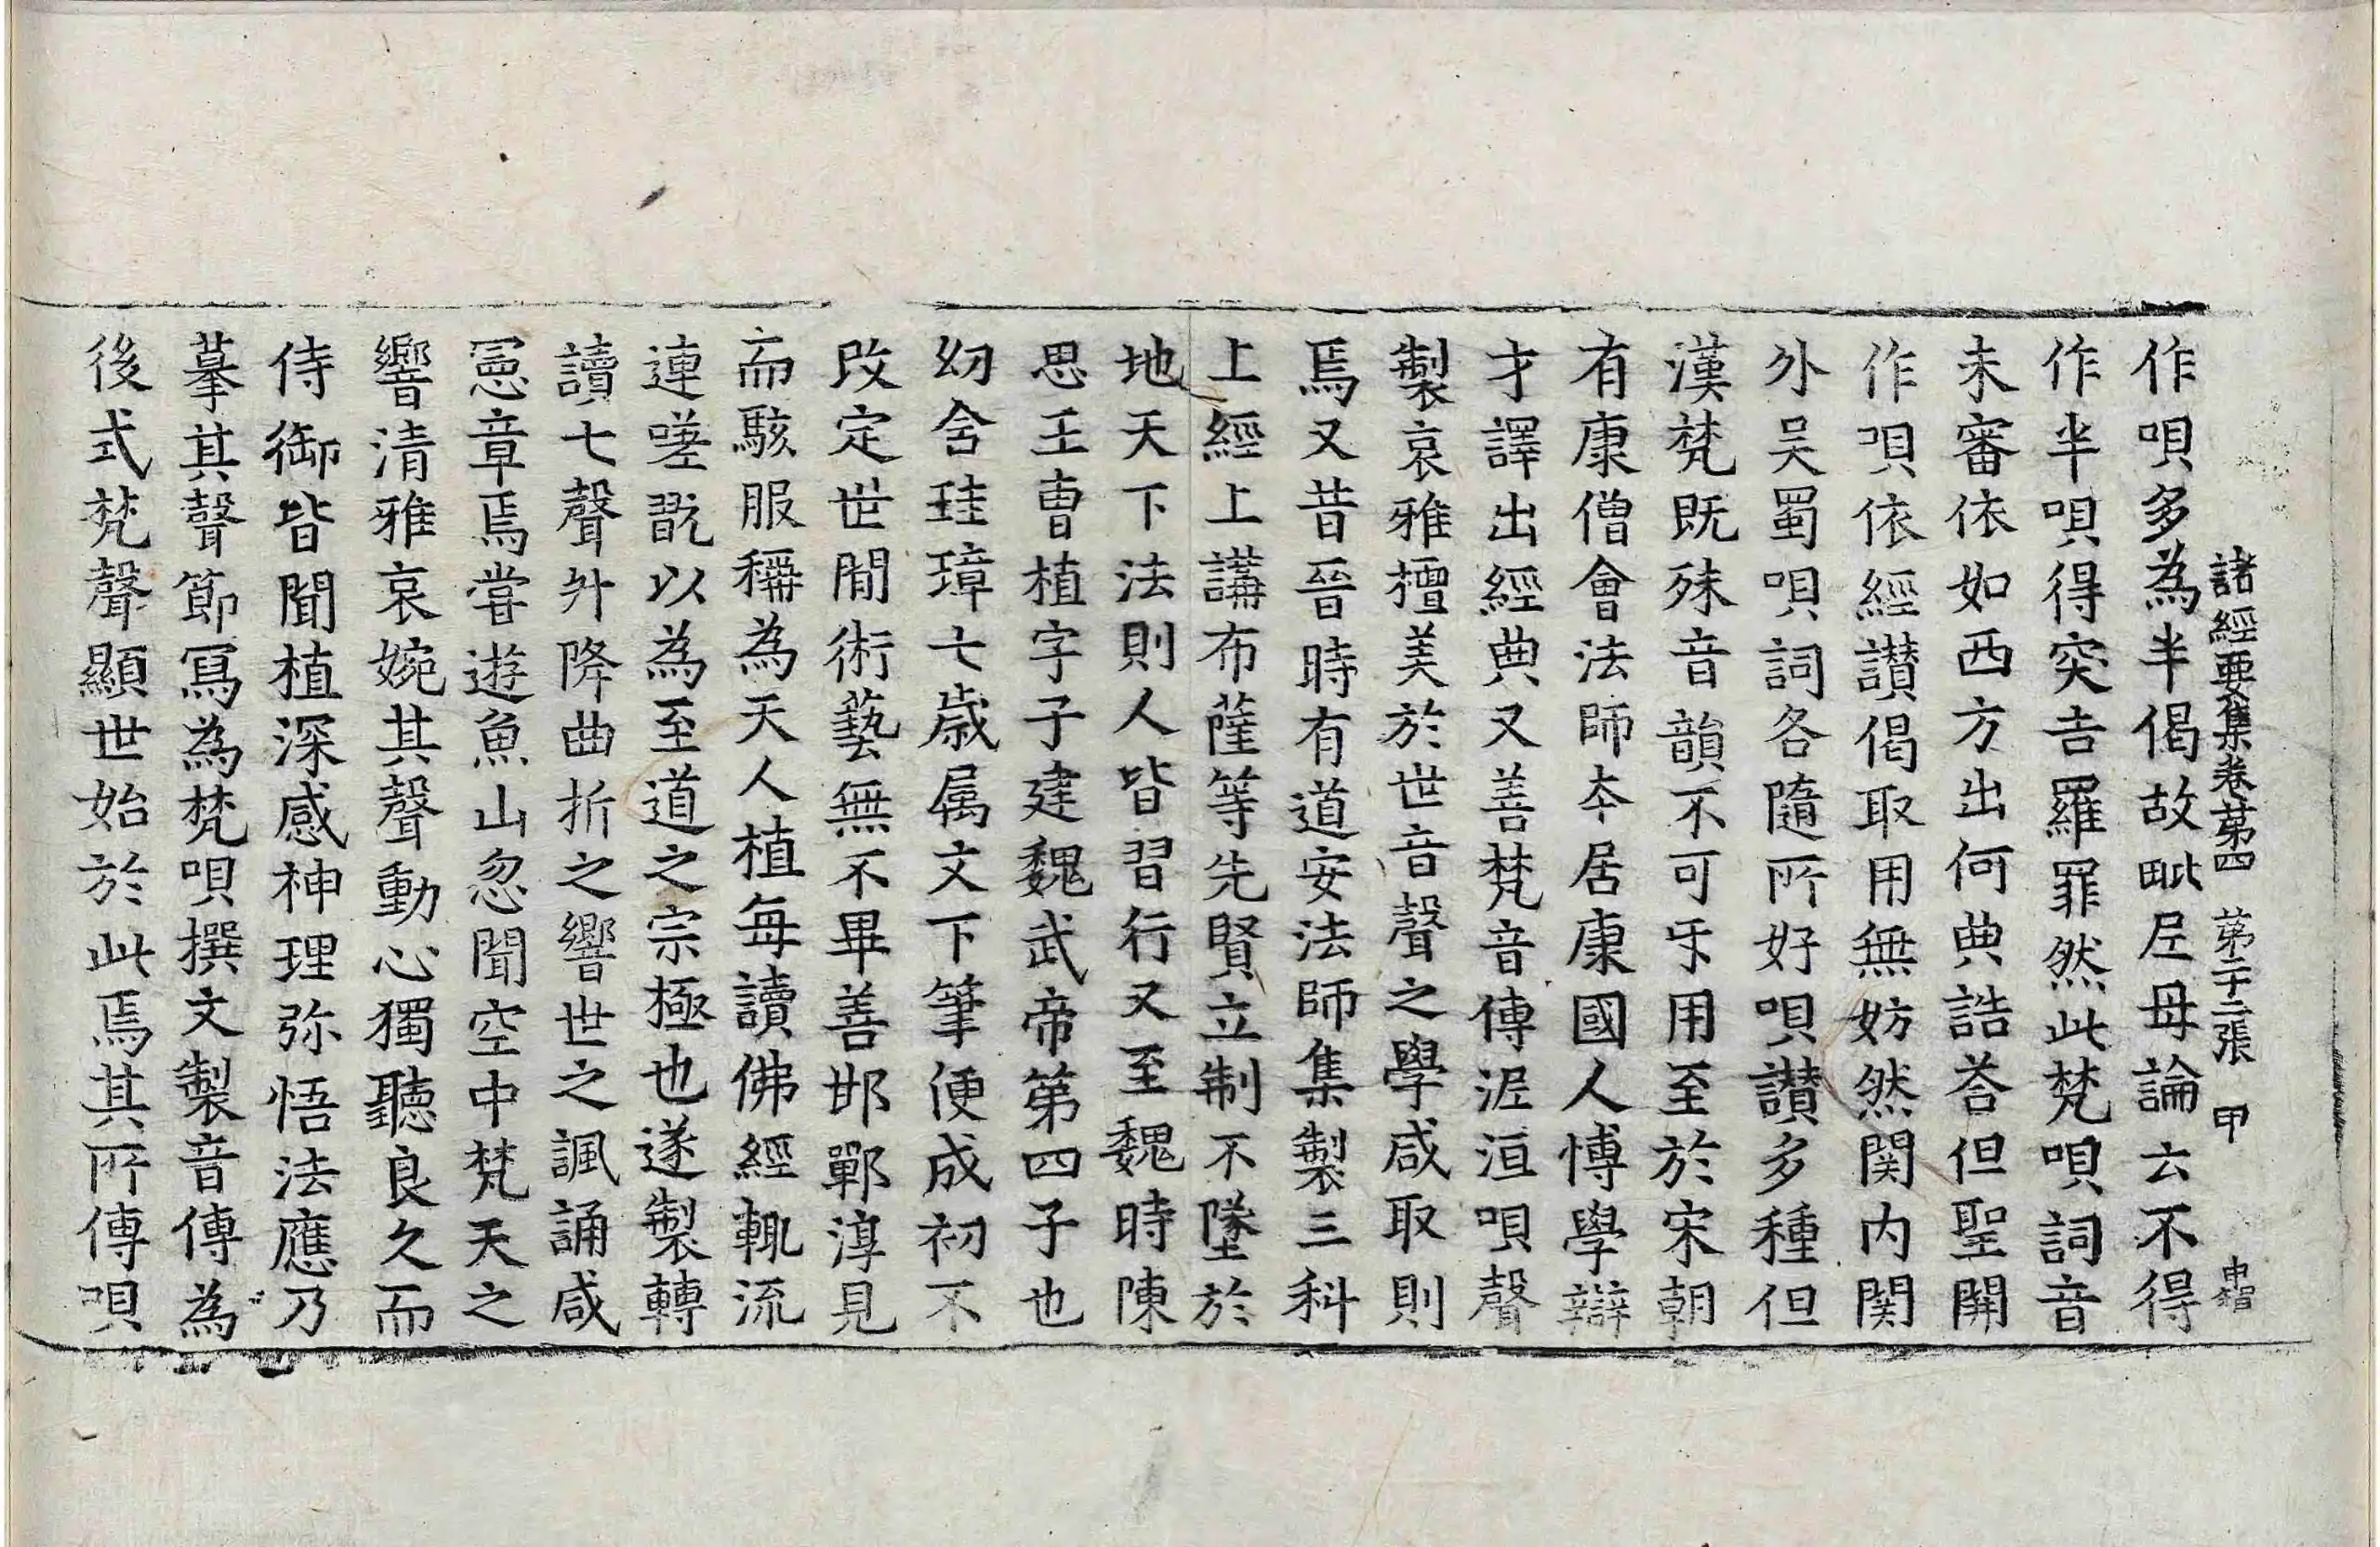 諸經要集卷第四 第二十三張 甲 中智
作唄多為半偈故毗尼母論云不得
作半唄得突吉羅罪然此梵唄詞音
未審依如西方出何典誥荅但聖開
作唄依經讃偈取用無妨然関内関
外吴蜀唄詞各隨所好唄讃多種但
漢梵既殊音韻不可㸦用至於宋朝
有康僧會法師夲居康國人博學辯
才譯出經典又善梵音傳泥洹唄聲
製哀雅擅美於世音聲之學咸取則
焉又昔晉時有道安法師集製三科
上經上講布薩等先賢立制不墜於
地天下法則人皆習行又至魏時陳
思王曹植字子建魏武帝第四子也
㓜含珪璋七歳属文下筆便成初不
改定世間術藝無不畢善邯鄲淳見
而駭服稱為天人植每讀佛經輒流
連嗟翫以為至道之宗極也遂製轉
讀七聲升降曲折之響世之諷誦咸
憲章焉甞遊魚山忽聞空中梵天之
響清雅哀婉其聲動心獨聽良久而
侍御皆聞植深感神理弥悟法應乃
摹其聲節冩為梵唄撰文製音傳為
後式梵聲顯世始於此焉其所傳唄